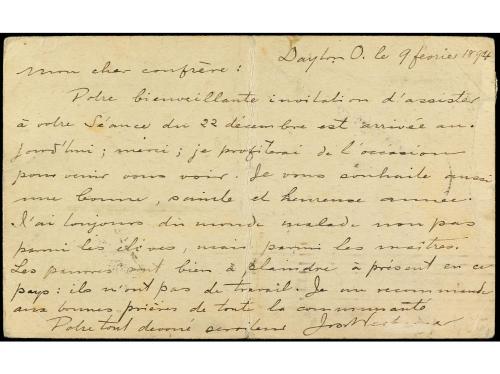 Dayton O. le 9 février 1894
Mon cher confrère :
Votre bienveillante invitation d'assister
à votre Séance du 22 décembre est arrivée au-
jourd'hui ; merci ; je profiterai de l'occasion
pour venir vous voir. Je vous souhaite aussi
une bonne, sainte et heureuse année.
J'ai toujours du monde malade non pas
parmi les élèves, mais parmi les maîtres.
Les pauvres sont bien à plaindre à présent en ce
pays : ils n'ont pas de travail. Je me recommande
aux bonnes prières de toute la communauté
Votre tout dévoué serviteur Jos